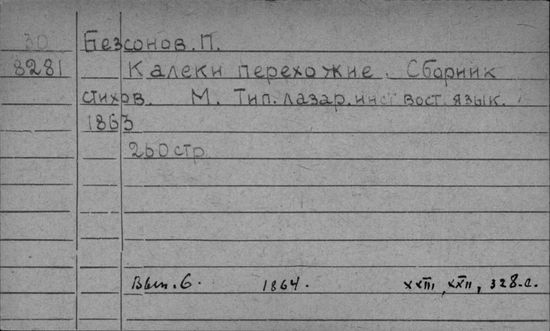 30 Безсонов. П.
8281 Калеки перехожие. Сборник
стихов. М. Тип. лазар. инст вост. язык.
1863
260 стр
Вып. 6. 1864. XXIII, XXII, 328 с.